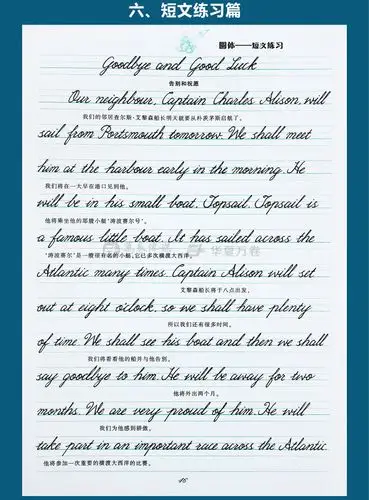 六、短文练习篇
圆体——短文练习
Goodbye and Good Luck
告别和祝愿
Our neighbour, Captain Charles Alison, will
我们的邻居查尔斯·艾黎森船长明天就要从朴茨茅斯启航了。
sail from Portsmouth tomorrow. We shall meet
him at the harbour early in the morning. He
我们将在一大早在港口见到他。
will be in his small boat, Topsail. Topsail is
他将乘坐他的那艘小艇“涛波赛尔号”。
a famous little boat. It has sailed across the
“涛波赛尔”是一艘很有名的小艇,它已多次横渡大西洋。
华夏万卷
Atlantic many times. Captain Alison will set
艾黎森船长将于八点出发,
out at eight o'clock, so we shall have plenty
所以我们还有很多时间。
of time. We shall see his boat and then we shall
我们将看看他的船并与他告别。
say goodbye to him. He will be away for two
他将外出两个月。
months. We are very proud of him. He will
我们为他感到骄傲。
take part in an important race across the Atlantic.
他将参加一次重要的横渡大西洋的比赛。